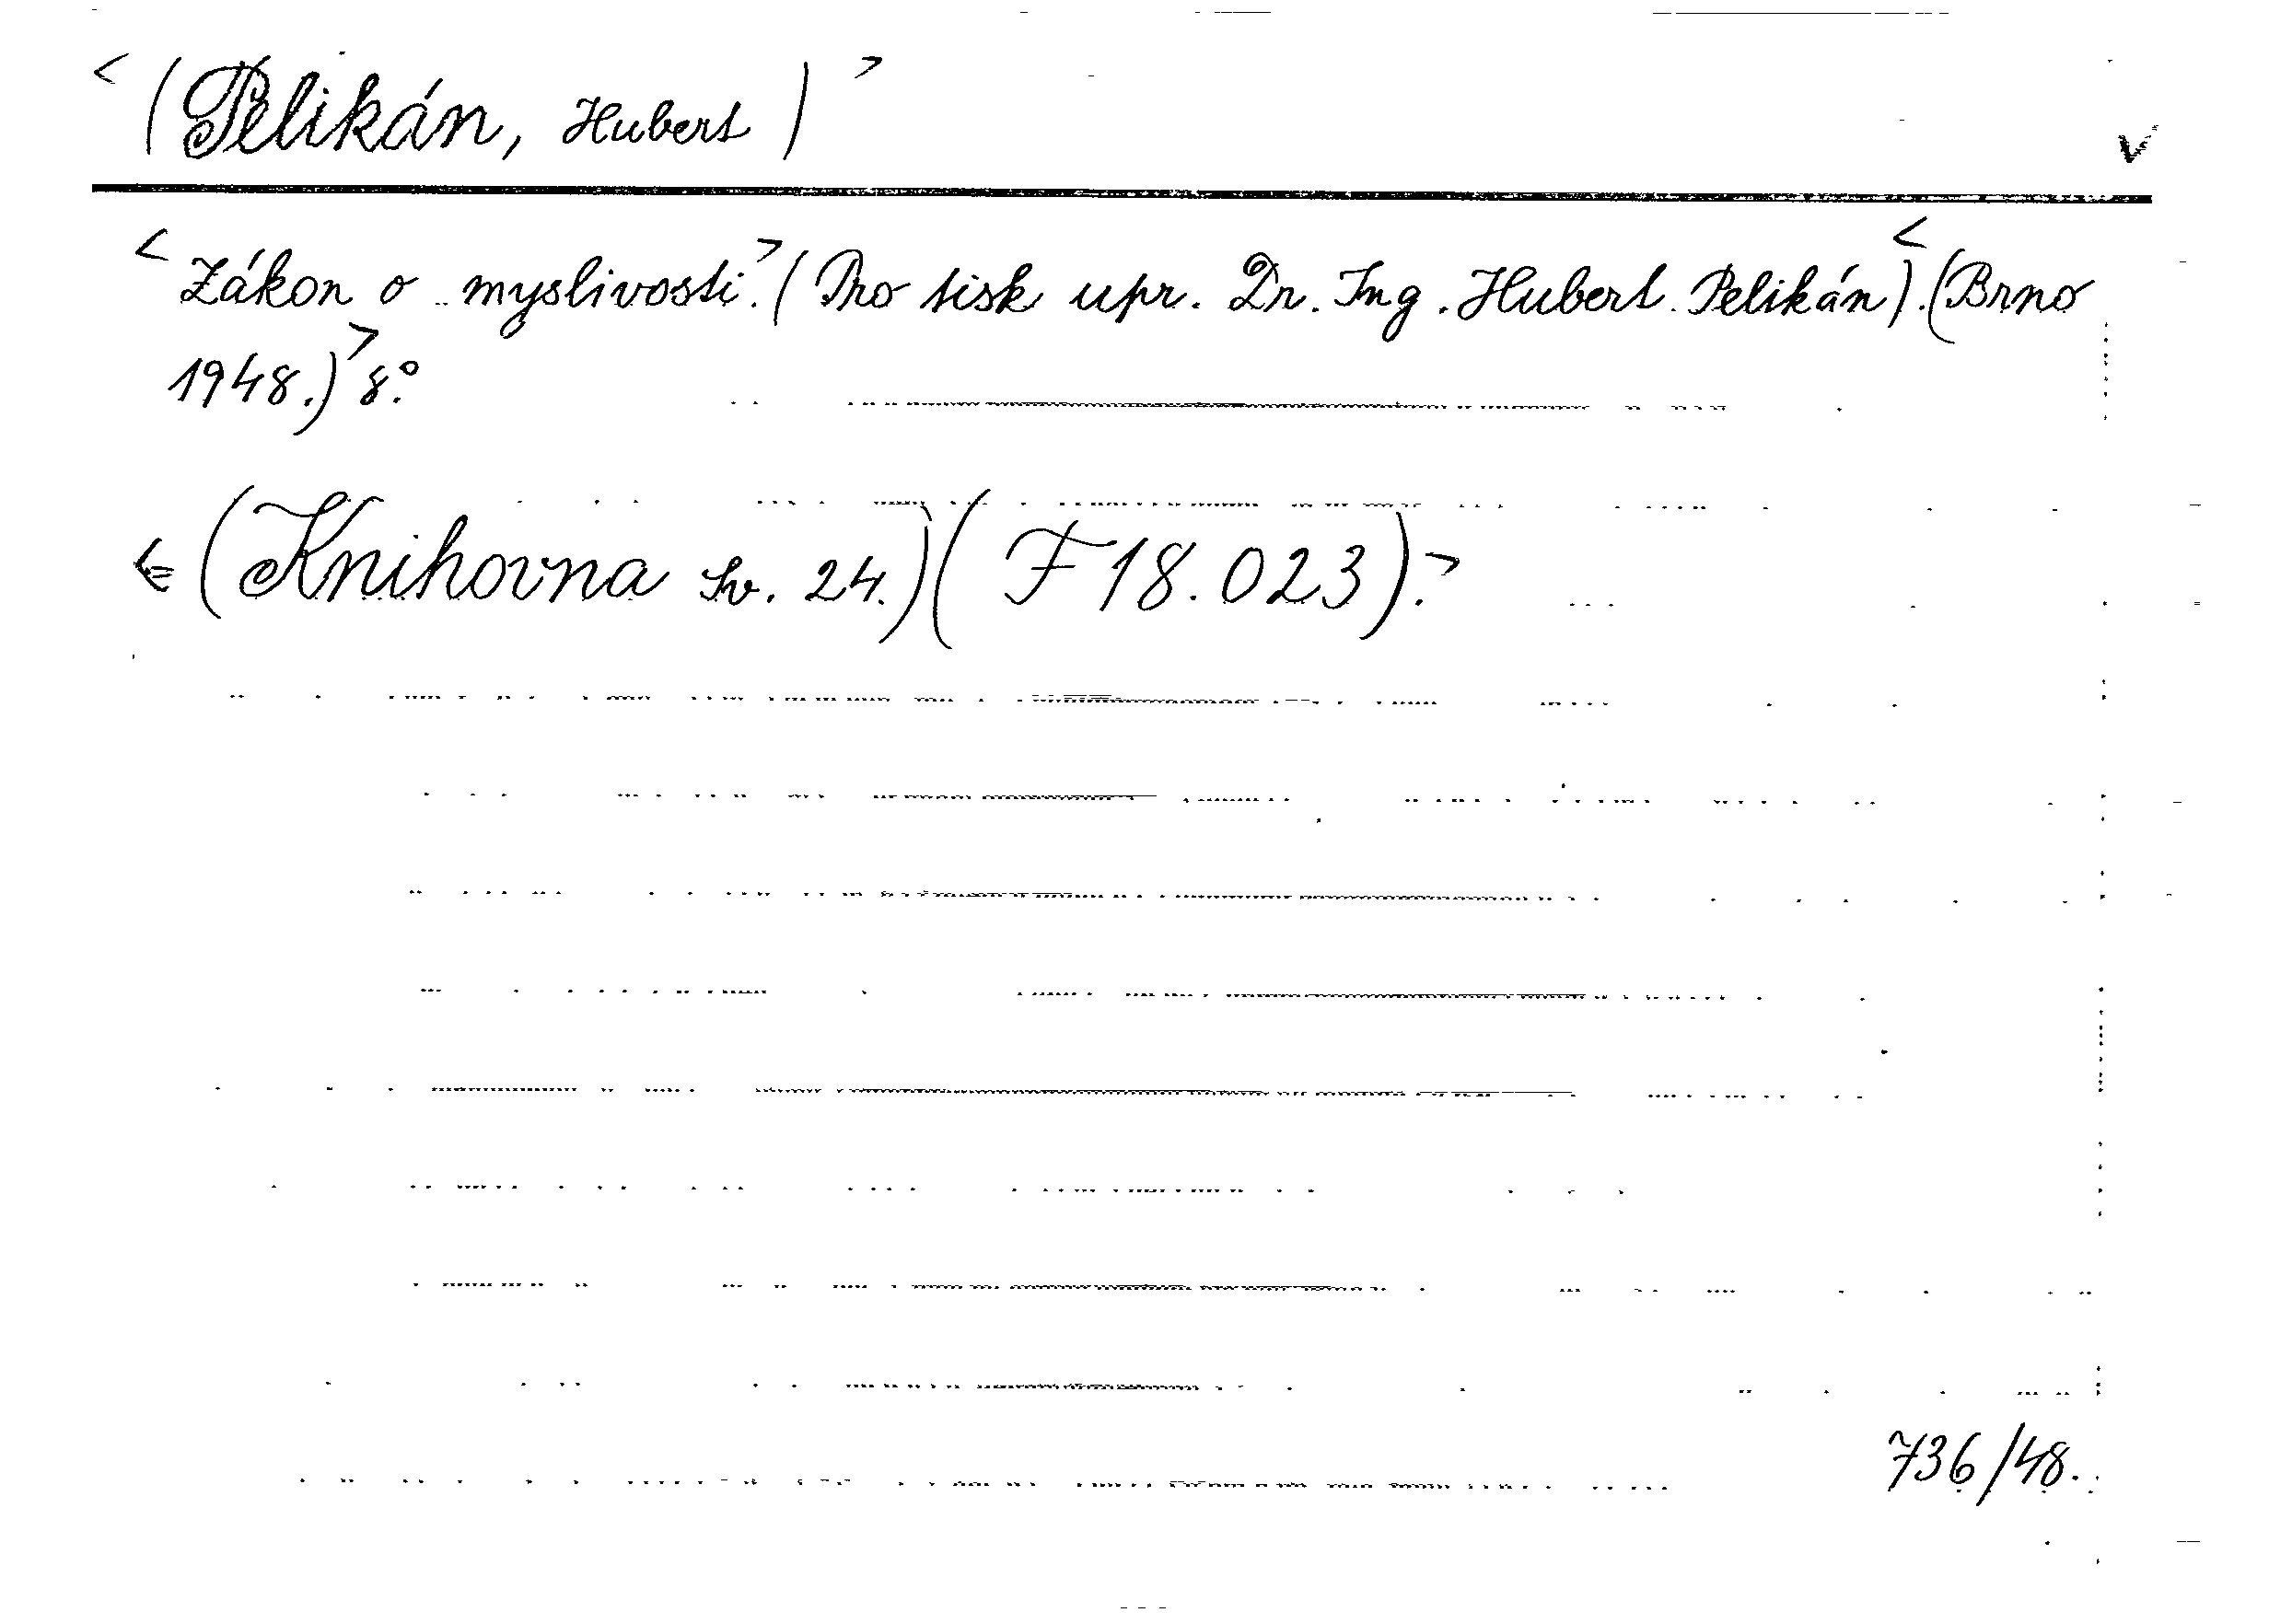 <(Pelikán, Hubert)> v
<Zákon o myslivosti.>(Pro tisk upr. Dr. Ing. Hubert Pelikán).<(Brno
1948.)> 8.°
<=(Knihovna Sv. 24.)(F 18.023).>
736/48.